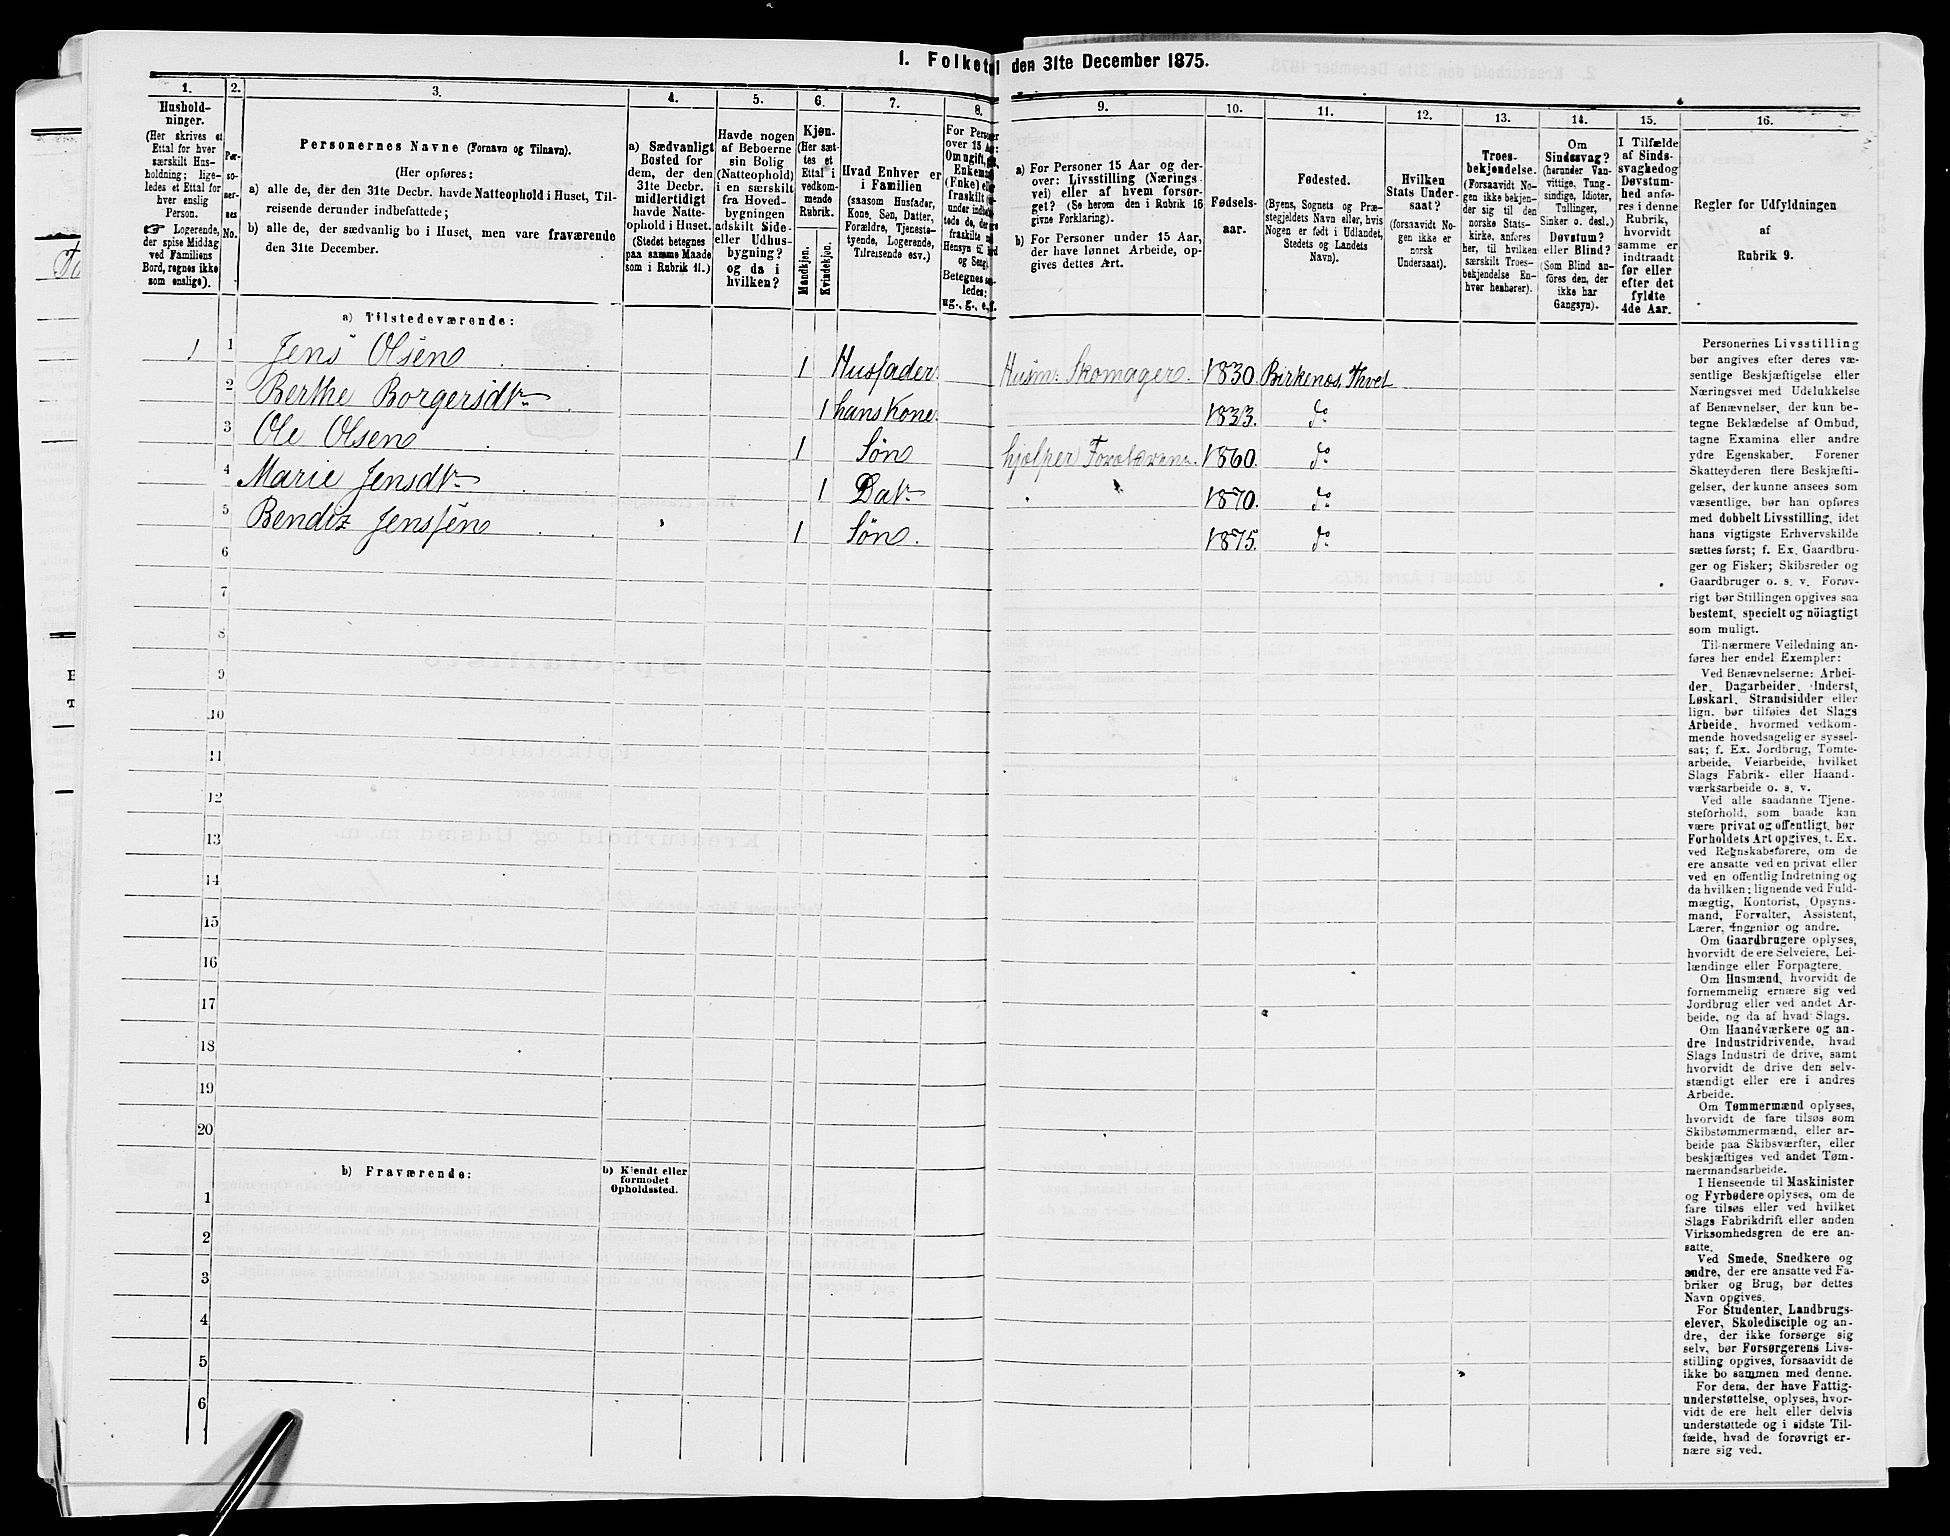 1. Folketal den 31te December 1875.
1.
Hushold-
ninger.
(Her skrives et
Ettal for hver
særskilt Hus-
holdning; lige-
ledes et Ettal for
hver enslig
Person.
☞ Logerende,
der spise Middag
ved Familiens
Bord, regnes ikke
som enslige).
2.
Per-
so-
ner-
nes
No.
3.
Personernes Navne (Fornavn og Tilnavn).
(Her opføres:
a) alle de, der den 31te Decbr. havde Natteophold i Huset, Til-
reisende derunder indbefattede;
b) alle de, der sædvanlig bo i Huset, men vare fraværende
den 31te December.
4.
a) Sædvanligt
Bosted for
dem, der den
31te Decbr.
midlertidigt
havde Natte-
ophold i Huset.
(Stedet betegnes
paa samme Maade
som i Rubrik 11.)
5.
Havde nogen
af Beboerne
sin Bolig
(Natteophold)
i en særskilt
fra Hoved-
bygningen
adskilt Side-
eller Udhus-
bygning?
og da i
hvilken?
6.
Kjøn.
(Her sæt-
tes et
Ettal i
vedkom-
mende
Rubrik.
Mandkjøn.
Kvindekjøn.
7.
Hvad Enhver er
i Familien
(saasom Husfader,
Kone, Søn, Datter,
Forældre, Tjeneste-
tyende, Logerende,
Tilreisende osv.)
8.
For Personer
over 15 Aar:
Om ugift, gift,
Enkemand
(Enke) eller
fraskilt
Betegnes saa-
ledes:
ug., g., e., f.
9.
a) For Personer 15 Aar og der-
over: Livsstilling (Nærings-
vei) eller af hvem forsør-
get? (Se herom den i Rubrik 16
givne Forklaring).
b) For Personer under 15 Aar,
der have lønnet Arbeide, op-
gives dettes Art.
10.
Fødsels-
aar.
11.
Fødested.
(Byens, Sognets og Præ-
stegjeldets Navn eller, hvis
Nogen er født i Udlandet,
Stedets og Landets
Navn).
12.
Hvilken
Stats Under-
saat?
(forsaavidt No-
gen ikke er
norsk
Undersaat).
13.
Troes-
bekjendelse.
(Forsaavidt No-
gen ikke bekjen-
der sig til den
norske Stats-
kirke, anføres
her, til hvilken
særskilt Troes-
bekjendelse En-
hver henhører).
14.
Om
Sindssvag?
(herunder Van-
vittige, Tung-
sindige, Idioter,
Tullinger,
Sinker o. desl.)
Døvstum?
eller Blind?
(Som Blind an-
føres den, der
ikke har
Gangsyn).
15.
I Tilfælde
af Sinds-
svaghed og
Døvstum-
hed anfø-
res i denne
Rubrik,
hvorvidt
samme er
indtraadt
før eller
efter det
fyldte
4de Aar.
16.
Regler for Udfyldningen
af
Rubrik 9.
a) Tilstedeværende:
1 1 Jens Olsen 1 Husfader Husm: Skomager 1830 Birkenæs, Thvet
2 Berthe Borgersdtr 1 hans Kone 1833 do
3 Ole Olsen 1 Søn hjælper Forældrene 1860 do
4 Marie Jensdtr 1 Datr 1870 do
5 Bendiz Jenssen 1 Søn 1875 do
6
7
8
9
10
11
12
13
14
15
16
17
18
19
20
b) Fraværende:
b) Kjendt eller
formodet
Opholdssted.
1
2
3
4
5
6
Personernes Livsstilling
bør angives efter deres væ-
sentlige Beskjæftigelse eller
Næringsvei med Udelukkelse
af Benævnelser, der kun be-
tegne Beklædelse af Ombud,
tagne Examina eller andre
ydre Egenskaber. Forener
Skatteyderen flere Beskjæfti-
gelser, der kunne ansees som
væsentlige, bør han opføres
med dobbelt Livsstilling, idet
hans vigtigste Erhvervskilde
sættes først; f. Ex. Gaardbru-
ger og Fisker; Skibsreder og
Gaardbruger o. s. v. Forøv-
rigt bør Stillingen opgives saa
bestemt, specielt og nöiagtigt
som muligt.
Til nærmere Veiledning an-
føres her endel Exempler:
Ved Benævnelserne: Arbei-
der, Dagarbeider, Inderst,
Løskarl, Strandsidder eller
lign. bør tilføies det Slags
Arbeide, hvormed vedkom-
mende hovedsagelig er syssel-
sat; f. Ex. Jordbrug, Tomte-
arbeide, Veiarbeide, hvilket
Slags Fabrik- eller Haand-
værksarbeide o. s. v.
Ved alle saadanne Tjene-
steforhold, som baade kan
være privat og offentligt, bør
Forholdets Art opgives, t. Ex.
ved Regnskabsførere, om de
ere ansatte ved en privat eller
ved en offentlig Indretning og
da hvilken; lignende ved Fuld-
mægtig, Kontorist, Opsyns-
mand, Forvalter, Assistent,
Lærer, Ingeniør og andre.
Om Gaardbrugere oplyses,
hvorvidt de ere Selveiere, Lei-
lændinge eller Forpagtere.
Om Husmænd, hvorvidt de
fornemmelig ernære sig ved
Jordbrug eller ved andet Ar-
beide, og da af hvad Slags.
Om Haandværkere og an-
dre Industridrivende, hvad
Slags Industri de drive, samt
hvorvidt de drive den selv-
stændigt eller ere i andres
Arbeide.
Om Tømmermænd oplyses,
hvorvidt de fare tilsøs som
Skibstømmermænd, eller ar-
beide paa Skibsværfter, eller
beskjæftiges ved andet Tøm-
mermandsarbeide.
I Henseende til Maskinister
og Fyrbødere oplyses, om de
fare tilsøs eller ved hvilket
Slags Fabrikdrift eller anden
Virksomhedsgren de ere an-
satte.
Ved Smede, Snedkere og
andre, der ere ansatte ved Fa-
briker og Brug, bør dettes
Navn opgives.
For Studenter, Landbrugs-
elever, Skoledisciple og an-
dre, der ikke forsørge sig
selv, bør Forsørgerens Livs-
stilling opgives, forsaavidt de
ikke bo sammen med denne.
For dem, der have Fattig-
understøttelse, oplyses, hvor-
vidt de ere helt eller delvis
understøttede og i sidste Til-
fælde, hvad de forøvrigt er-
nære sig ved.